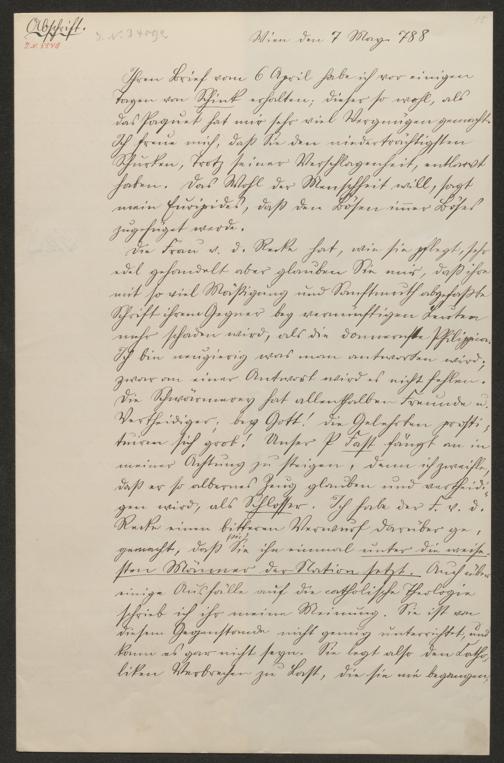 Abschrift.
Wien den 7 May 788
Ihren Brief vom 6 April habe ich vor einigen
Tagen von Schink erhalten; dieser so wohl, als
das Paquet hat mir sehr viel Vergnügen gemacht.
Ich freue mich, daß Sie den niederträchtigsten
Schurken, trotz seiner Verschlagenheit, entlarvt
haben. Das Wohl der Menschheit will, sagt
mein Euripides, daß den Bösen immer Böses
zugefüget werde.
Die Frau v. d. Recke hat, wie sie pflegt, sehr
edel gehandelt aber glauben Sie mir, daß ihre
mit so viel Mäßigung und Sanftmuth abgefaßte
Schrift ihrem Gegner bey vernünftigen Leuten
mehr schaden wird, als die donnernste Philippica.
Ich bin neugierig was man antworten wird;
zwar an einer Antwort wird es nicht fehlen.
Die Schwärmerey hat allenthalben Freunde u.
Vertheidiger; bey Gott! die Gelehrten prosti-
tuiren sich grob! Unser P Fast fängt an in
meiner Achtung zu steigen, denn ich zweifle,
daß er so albernes Zeug glauben und vertheidi-
gen wird, als Schlosser. Ich habe der F. v. d.
Recke einen bitteren Vorwurf darüber ge-
gemacht, daß Sie ihn einmal unter die weise-
sten Männer der Nation setzt. Auch über
einige Ausfälle auf die catholische Theologie
schrieb ich ihr meine Meinung. Sie ist von
diesem Gegenstande nicht genug unterrichtet, und
kann es gar nicht seyn. Sie legt also den Catho-
liken Verbrechen zu Last, die sie nie begangen,